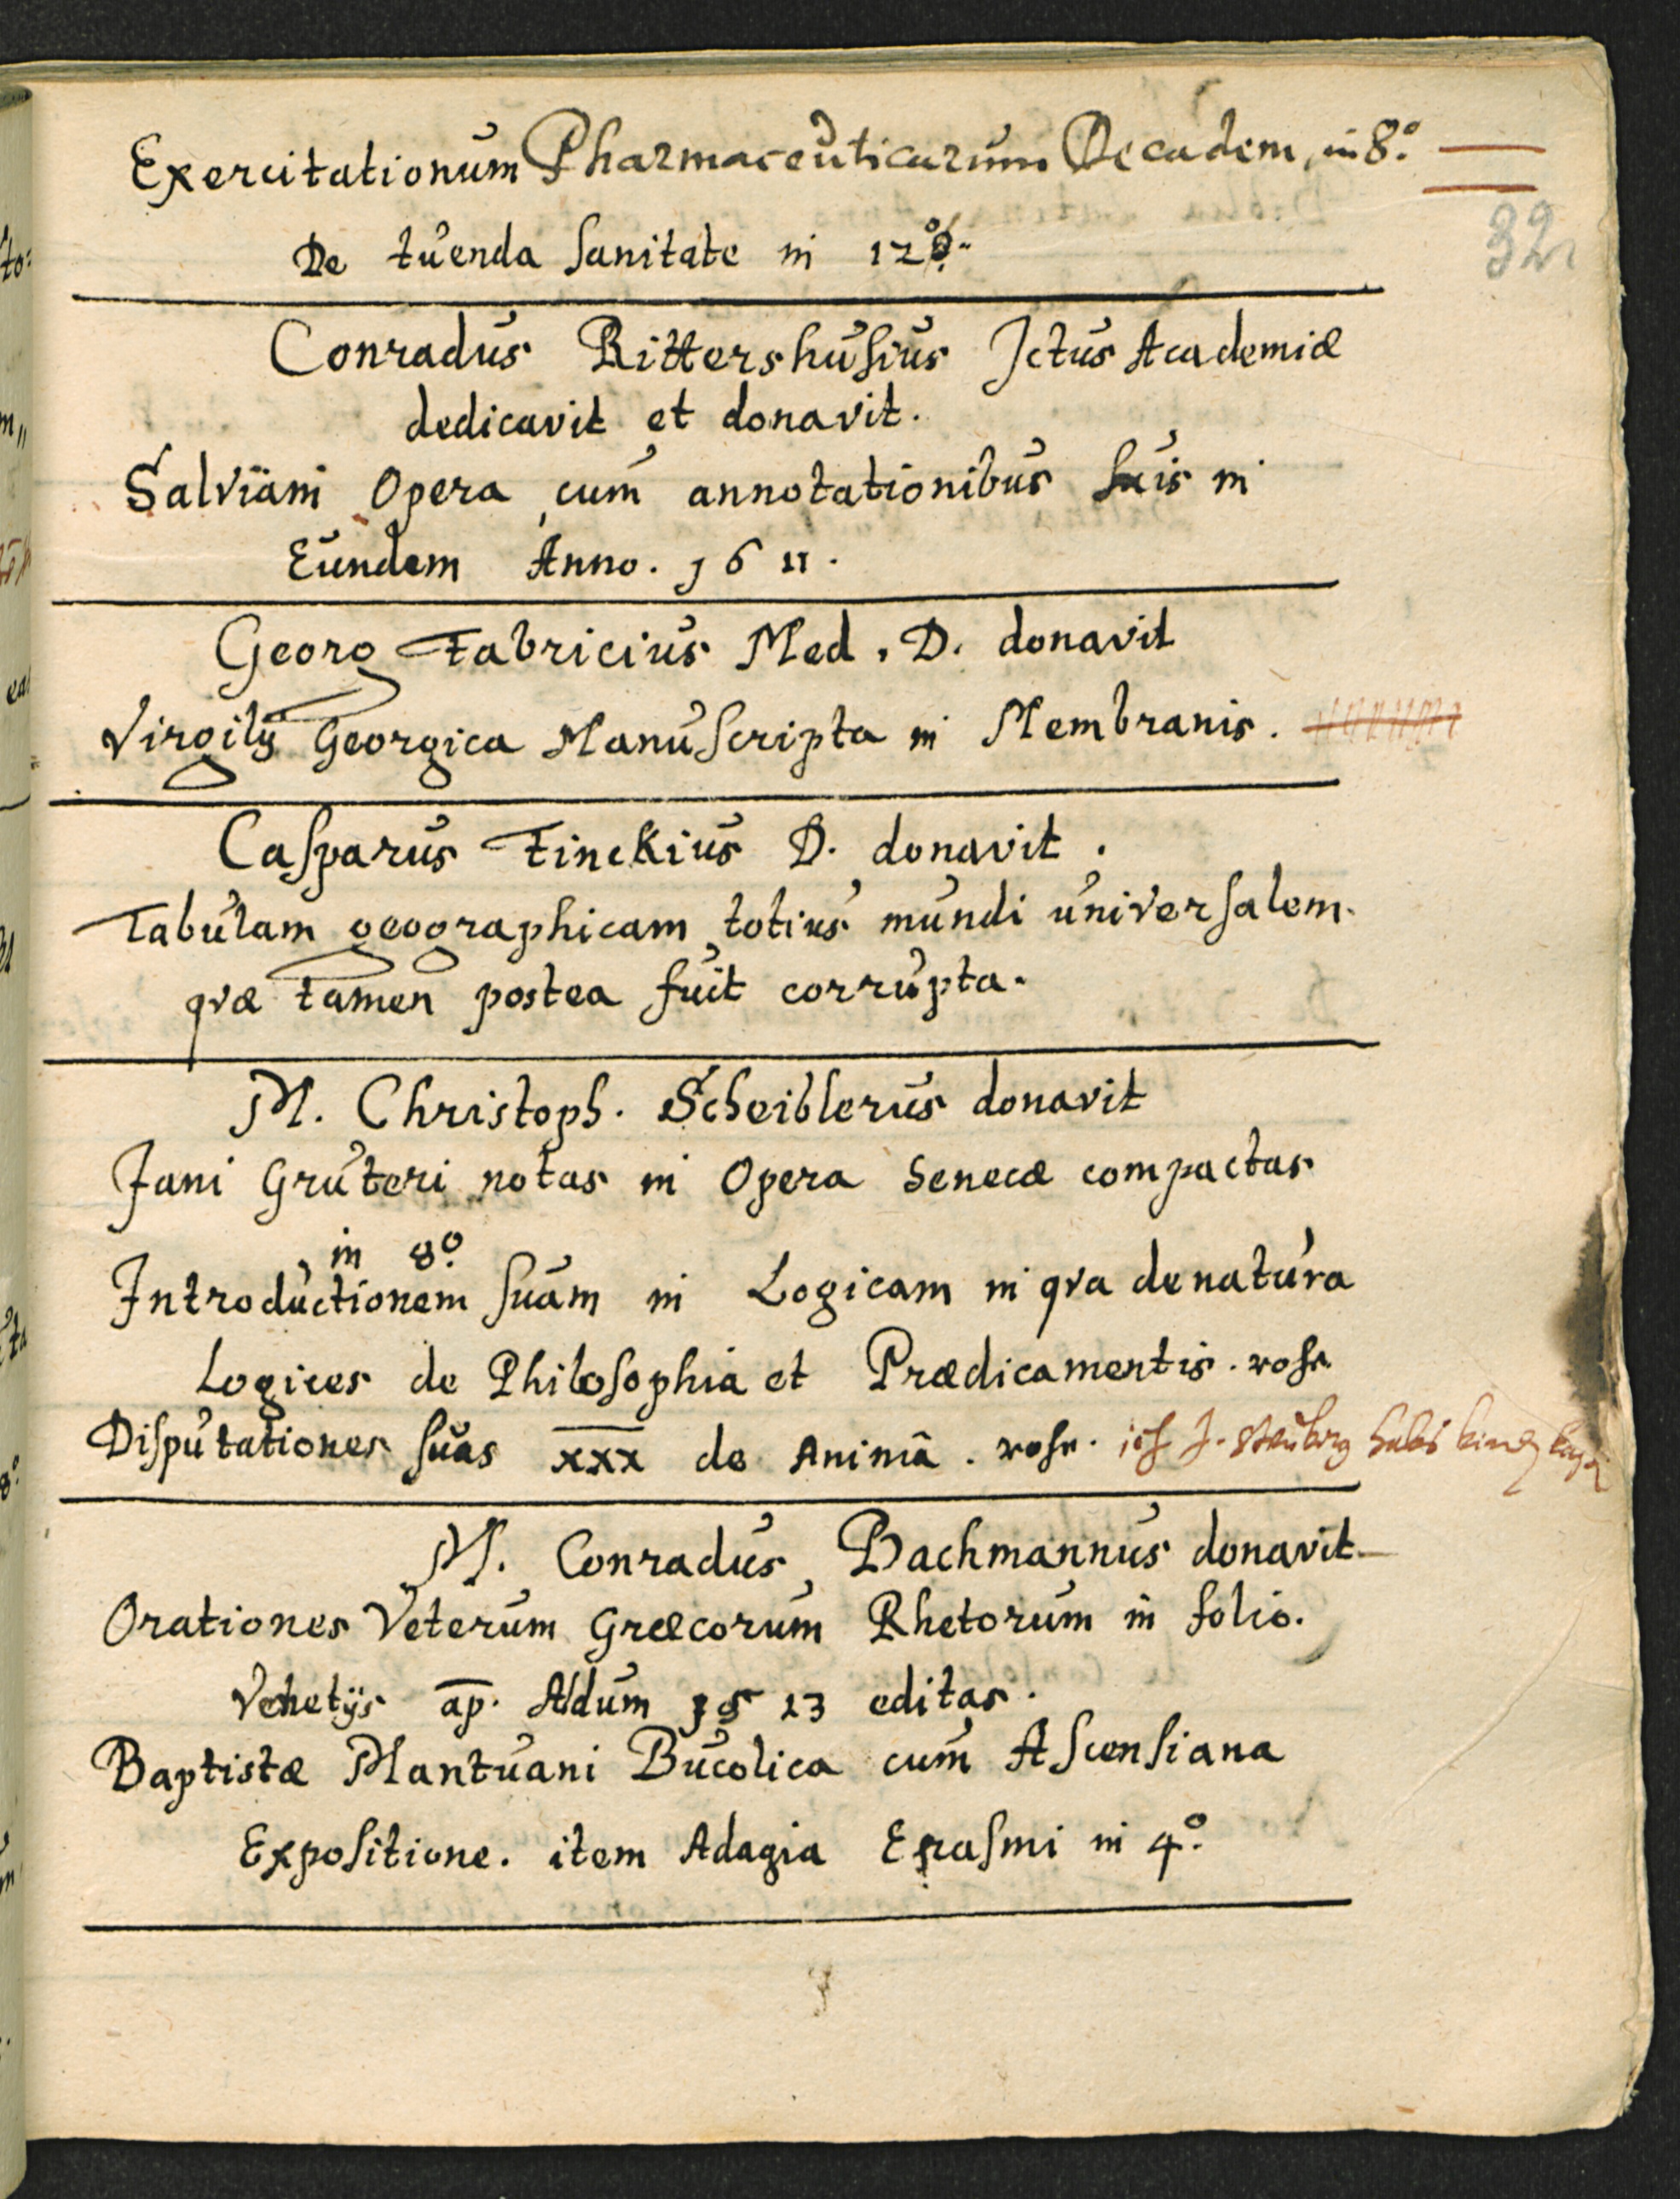 Exercitationum Pharmaceuticarum Decadem, in 8º.
32
De tuenda sanitate in 12º.
Conradus Rittershusius Jctus Academiæ
dedicavit et donavit.
Salviani Opera cum annotationibus suis in
Eundem Anno. 1611.
Georg Fabricius Med. D. donavit
Virgilij Georgica Manuscripta in Membranis.
Casparus Finckius D. donavit.
Tabulam geographicam totius mundi universalem.
qvæ tamen postea fuit corrupta.
M. Christoph. Scheiblerus donavit
Jani Gruteri notas in Opera Senecæ compactas
in 8º.
Introductionem suam in Logicam in qva de natura
Logices de Philosophia et Prædicamentis.
Disputationes suas xxx de Animâ.
M. Conradus Bachmannus donavit
Orationes Veterum Græcorum Rhetorum in folio.
Venetijs ap. Aldum 1513 editas.
Baptistæ Mantuani Bucolica cum Ascensiana
Expositione. item Adagia Erasmi in 4º.